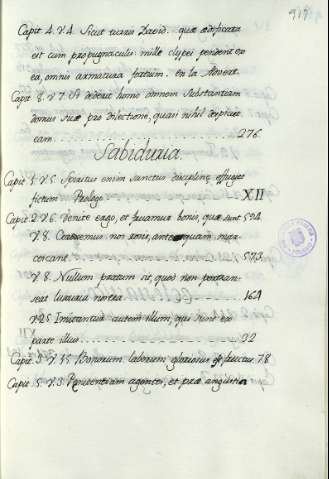 917.
Capit. 4. V. 4. Sicut turris David. quæ ædificata
est cum propugnaculis: mille clypei pendent ex
ea, omnis armatura fortium. en la Advert.
Capit. 8. V. 7. Si dederit homo omnem substantiam
domus suæ pro dilectione, quasi nihil despiciet
eam. 276
Sabiduria.
Capit. 1. V. 5. Spiritus enim Sanctus disciplinæ effugiet
fictum Prologo XII
Capit. 2. V. 6. Venite ergo, et fruamur bonis, quæ sunt 594
V. 8. Coronemus nos rosis, antequam
573
V. 8. Nullum pratum sit, quod non pertran-
seat luxuria nostra 164
V. 25. Imitantur autem illum, qui sunt ex
parte illius 92
Capit. 3. V. 15. Bonorum laborum gloriosus est fructus. 78
Capit. 5. V. 3. Pœnitentiam agentes, et præ angustia